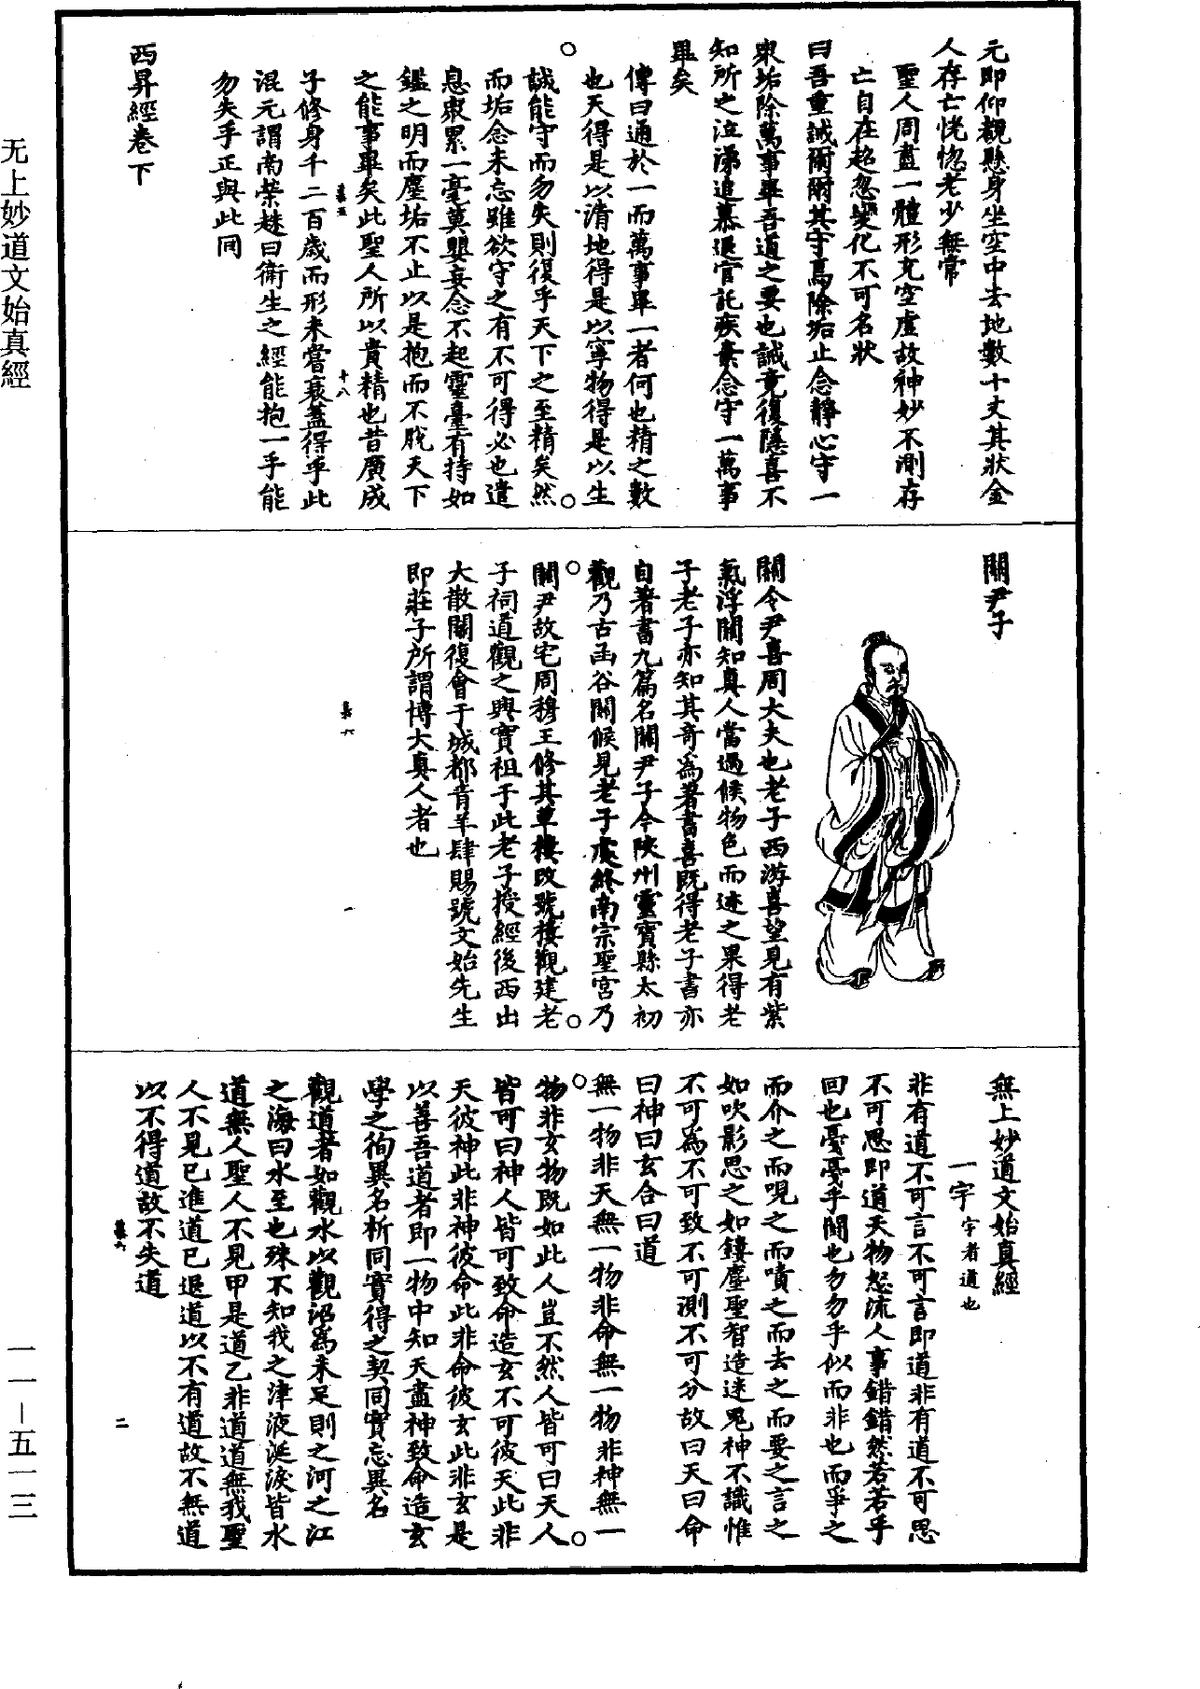 元即仰觀懸身坐空中去地數十丈其狀金
人存亡恍惚老少無常
聖人周盡一體形充空虛故神妙不測存
亡自在超忽變化不可名狀
曰吾重誡爾爾其守焉除垢止念靜心守一
衆垢除萬事畢吾道之要也誡竟復隱喜不
知所之泣涕追慕退官託疾棄念守一萬事
畢矣
傳曰通於一而萬事畢一者何也精之數
也天得是以清地得是以寧物得是以生
誠能守而勿失則復乎天下之至精矣然
而垢念未忘雖欲守之有不可得必也遣
息衆累一毫莫嬰妄念不起靈臺有持如
鑑之明而塵垢不止以是抱而不脫天下
之能事畢矣此聖人所以貴精也昔廣成
子修身千二百歲而形未嘗衰蓋得乎此
混元謂南榮趎曰衛生之經能抱一乎能
勿失乎正與此同
西昇經卷下
十八
關尹子
關令尹喜周大夫也老子西游喜望見有紫
氣浮關知真人當過候物色而迹之果得老
子老子亦知其奇為著書喜既得老子書亦
自著書九篇名關尹子今陝州靈寶縣太初
觀乃古函谷關候見老子處終南宗聖宮乃
關尹故宅周穆王修其草樓改號樓觀建老
子祠道觀之興實祖于此老子授經後西出
大散關復會于城都青羊肆賜號文始先生
即莊子所謂博大真人者也
一
無上妙道文始真經
一宇 宇者道也
非有道不可言不可言即道非有道不可思
不可思即道天物怒流人事錯錯然若若乎
回也戞戞乎鬭也勿勿乎似而非也而爭之
而介之而哯之而嘖之而去之而要之言之
如吹影思之如鏤塵聖智造迷鬼神不識惟
不可為不可致不可測不可分故曰天曰命
曰神曰玄合曰道
無一物非天無一物非命無一物非神無一
物非玄物既如此人豈不然人皆可曰天人
皆可曰神人皆可致命造玄不可彼天此非
天彼神此非神彼命此非命彼玄此非玄是
以善吾道者即一物中知天盡神致命造玄
學之徇異名析同實得之契同實忘異名
觀道者如觀水以觀沼為未足則之河之江
之海曰水至也殊不知我之津液涎淚皆水
道無人聖人不見甲是道乙非道道無我聖
人不見己進道已退道以不有道故不無道
以不得道故不失道
二
无上妙道文始真經
一一－五一三